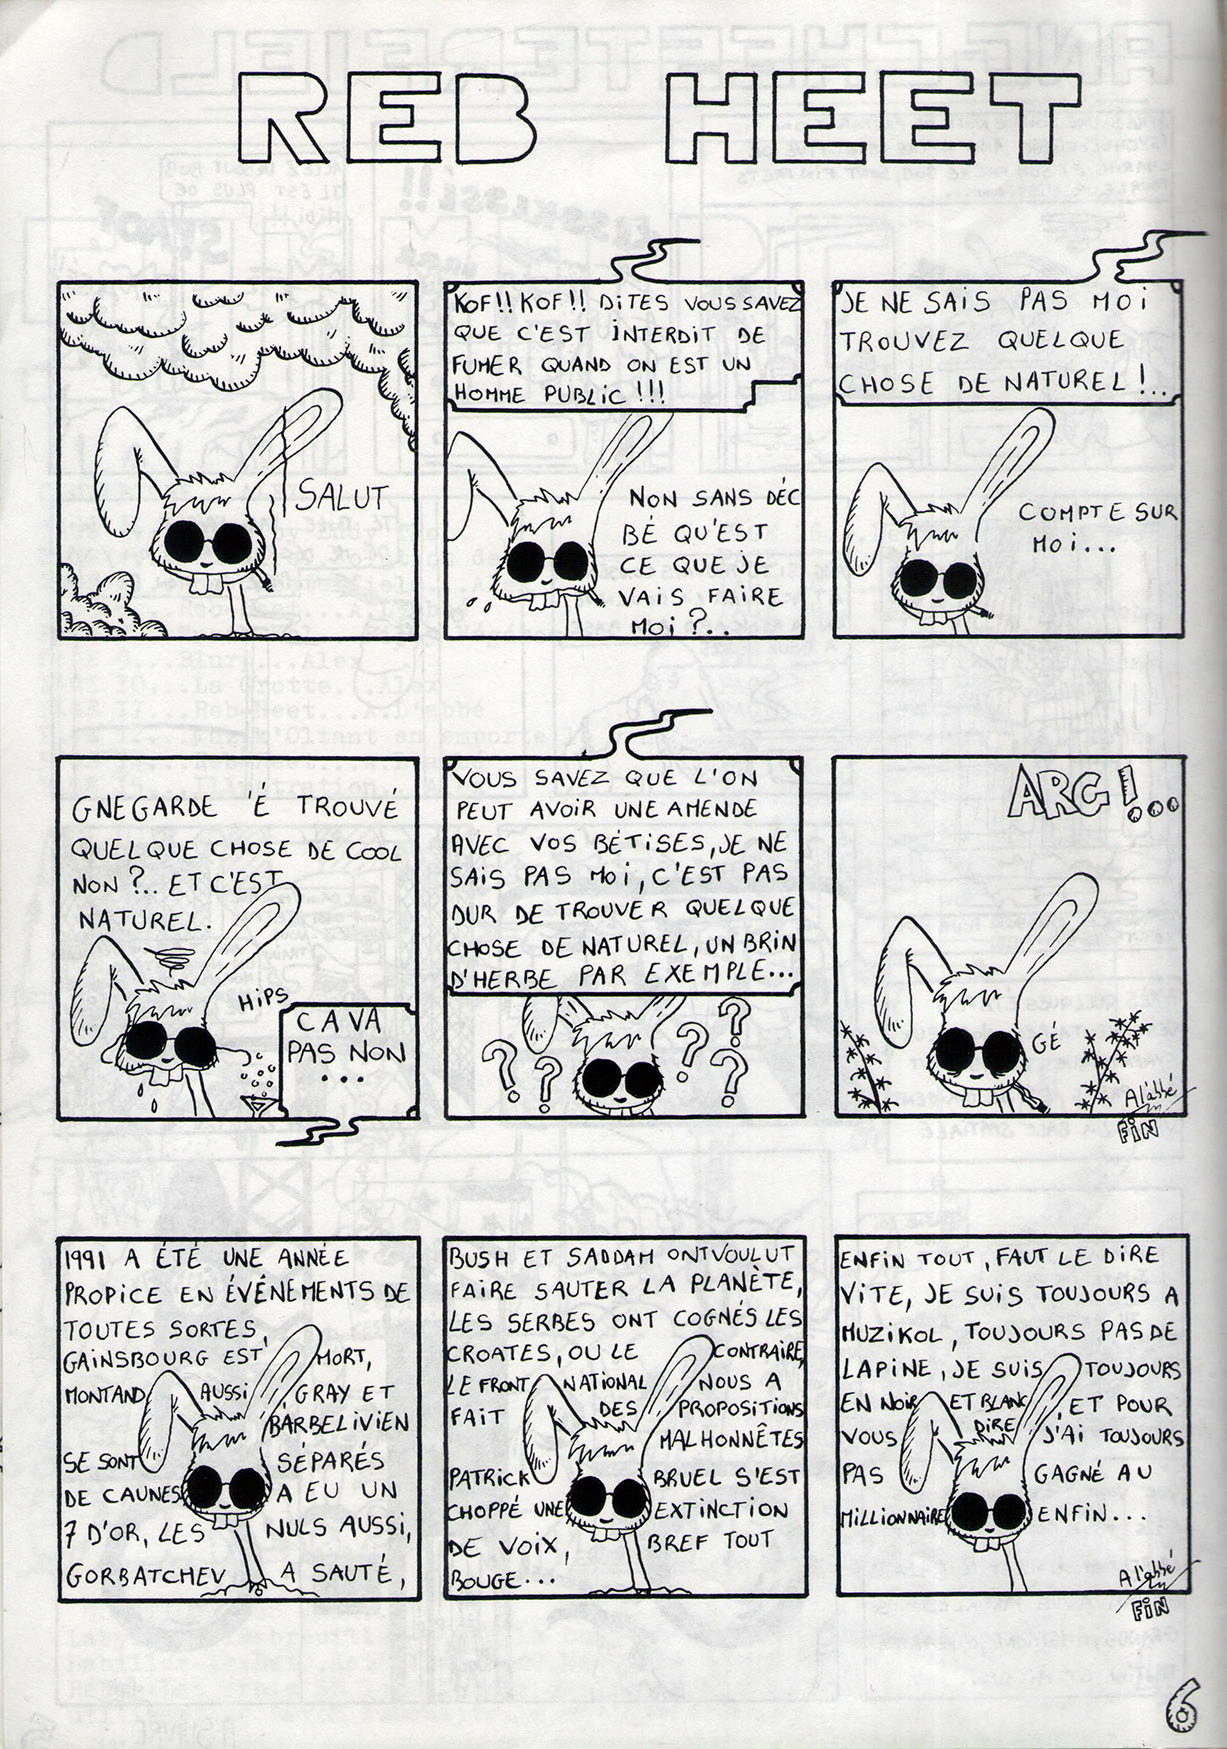 REB HEET
SALUT
KOF!! KOF!! DITES VOUS SAVEZ
QUE C'EST INTERDIT DE
FUMER QUAND ON EST UN
HOMME PUBLIC!!!
NON SANS DÉC
BÉ QU'EST
CE QUE JE
VAIS FAIRE
MOI?..
JE NE SAIS PAS MOI
TROUVEZ QUELQUE
CHOSE DE NATUREL!..
COMPTE SUR
MOI...
GNEGARDE 'É TROUVÉ
QUELQUE CHOSE DE COOL
NON?.. ET C'EST
NATUREL.
HIPS
CAVA
PAS NON
...
VOUS SAVEZ QUE L'ON
PEUT AVOIR UNE AMENDE
AVEC VOS BÉTISES, JE NE
SAIS PAS MOI, C'EST PAS
DUR DE TROUVER QUELQUE
CHOSE DE NATUREL, UN BRIN
D'HERBE PAR EXEMPLE...
? ? ? ? ?
ARG!...
GÉ
A l'abbé
FIN
1991 A ÉTÉ UNE ANNÉE
PROPICE EN ÉVÉNEMENTS DE
TOUTES SORTES,
GAINSBOURG EST MORT,
MONTAND AUSSI GRAY ET
BARBELIVIEN
SE SONT SÉPARÉS
DE CAUNES A EU UN
7 D'OR, LES NULS AUSSI,
GORBATCHEV A SAUTÉ,
BUSH ET SADDAM ONT VOULUT
FAIRE SAUTER LA PLANÈTE,
LES SERBES ONT COGNÉS LES
CROATES, OU LE CONTRAIRE,
LE FRONT NATIONAL NOUS A
FAIT DES PROPOSITIONS
MALHONNÊTES
PATRICK BRUEL S'EST
CHOPPÉ UNE EXTINCTION
DE VOIX, BREF TOUT
BOUGE...
ENFIN TOUT, FAUT LE DIRE
VITE, JE SUIS TOUJOURS A
MUZIKOL, TOUJOURS PAS DE
LAPINE, JE SUIS TOUJOURS
EN NOIR ET BLANC ET POUR
VOUS DIRE J'AI TOUJOURS
PAS GAGNÉ AU
MILLIONNAIRE ENFIN...
A l'abbé
FIN
6